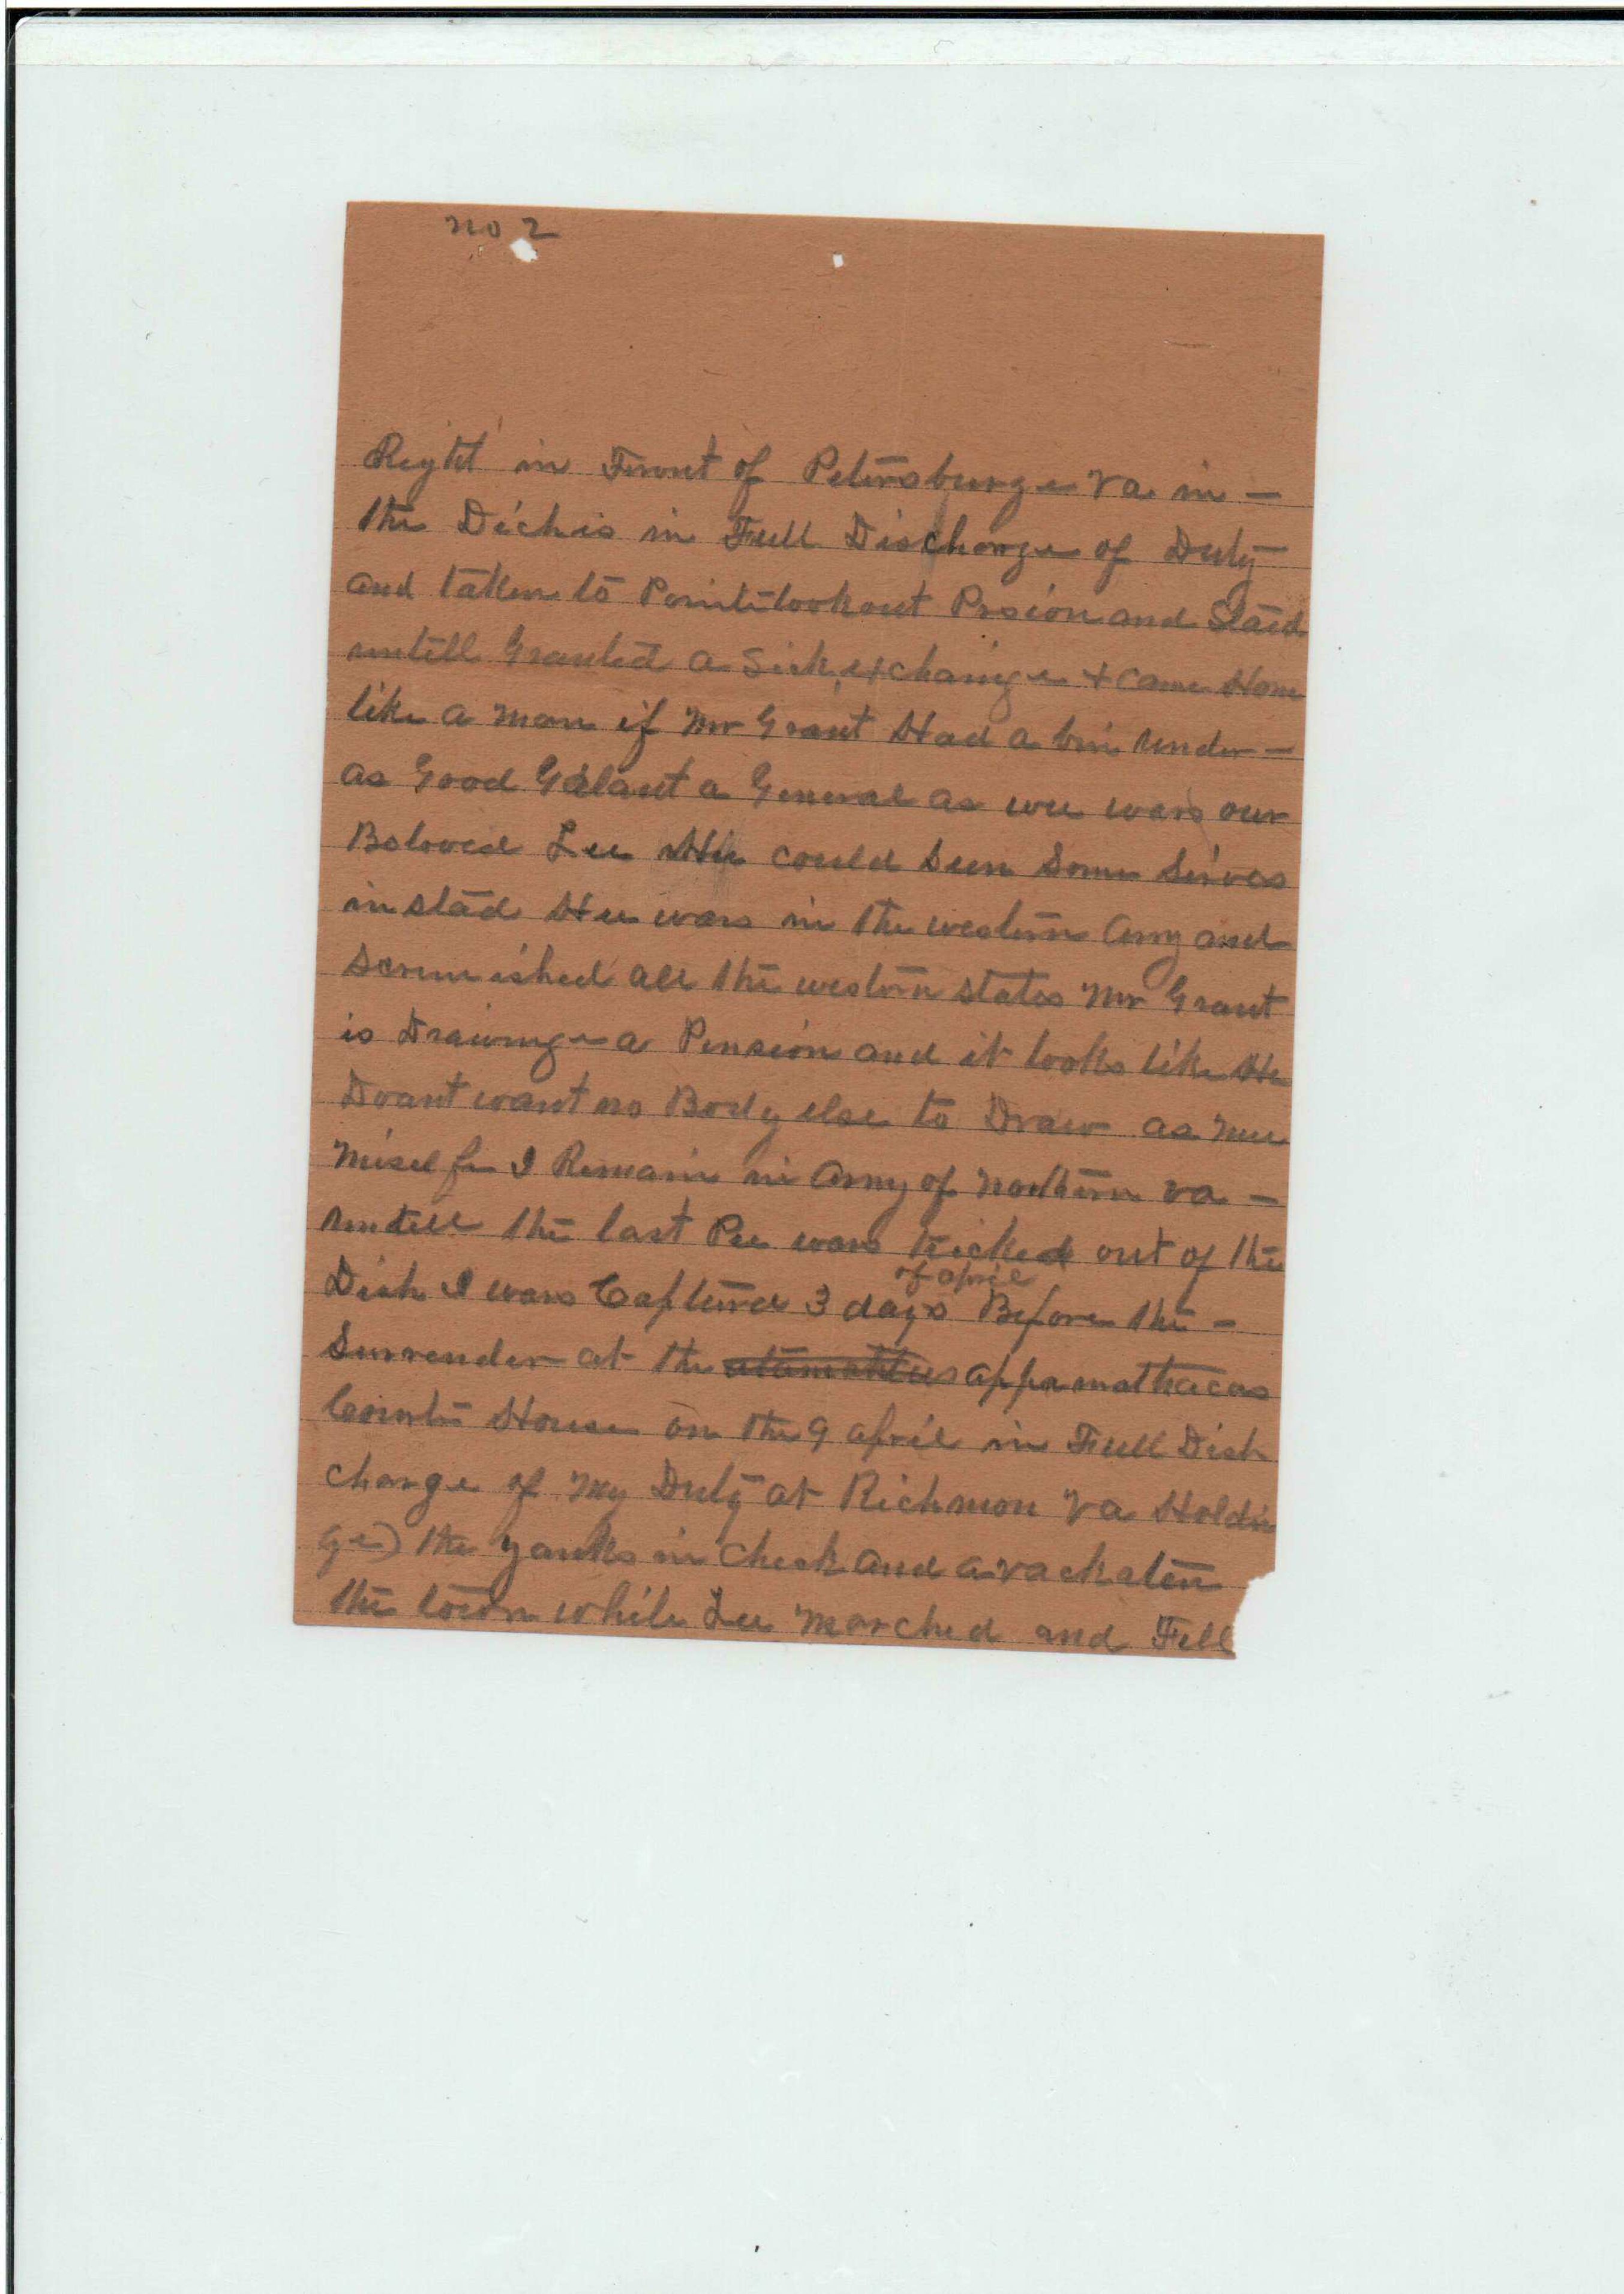 no 2
Right in Front of Petersburge Va in –
the Dichis in Full Discharge of Duty
and taken to Pointelookout Prsion and Staid
untill Granted a Sick exchainge + came Home
like a man if Mr Grant Had a bin under –
as Good Galant a General as wee wars our
Beloved Lee Hee could seen Some Servas
in stad Hee wars in the western Army and
Scrmished all the western states Mr Grant
is Drawinge a Pension and it looks like He
Doant want no Body else to Draw as Mee
Miself I Remain in Army of Northern va –
untell the last Pee wars kicked out of the
of april
Dich I wars Captured 3 days Before the –
Surrender at the appamattacas
Courte House on the 9 april in Full Dish
charge of My Duty at Richmon Va Holdin
ge) the yanks in check and avackaten
the town while Lee Marched and Fell